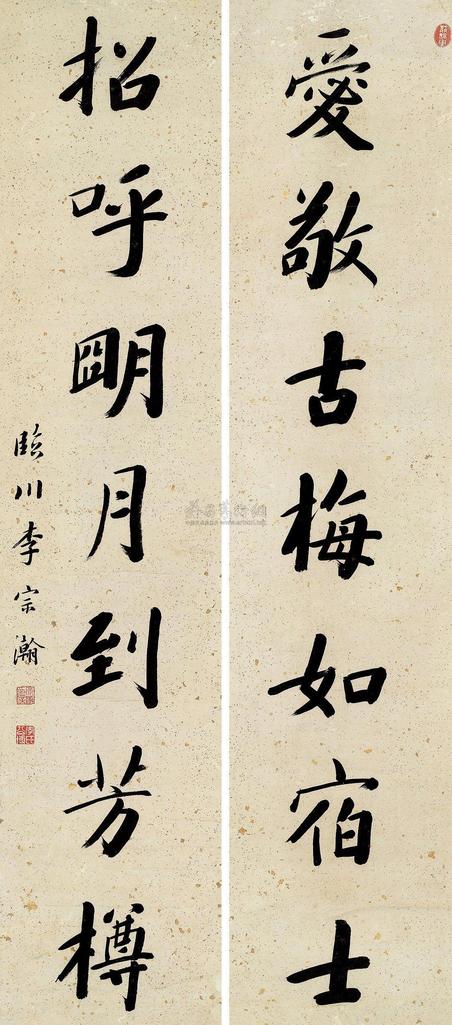 愛敬古梅如宿士
招呼朙月到芳樽
臨川李宗瀚